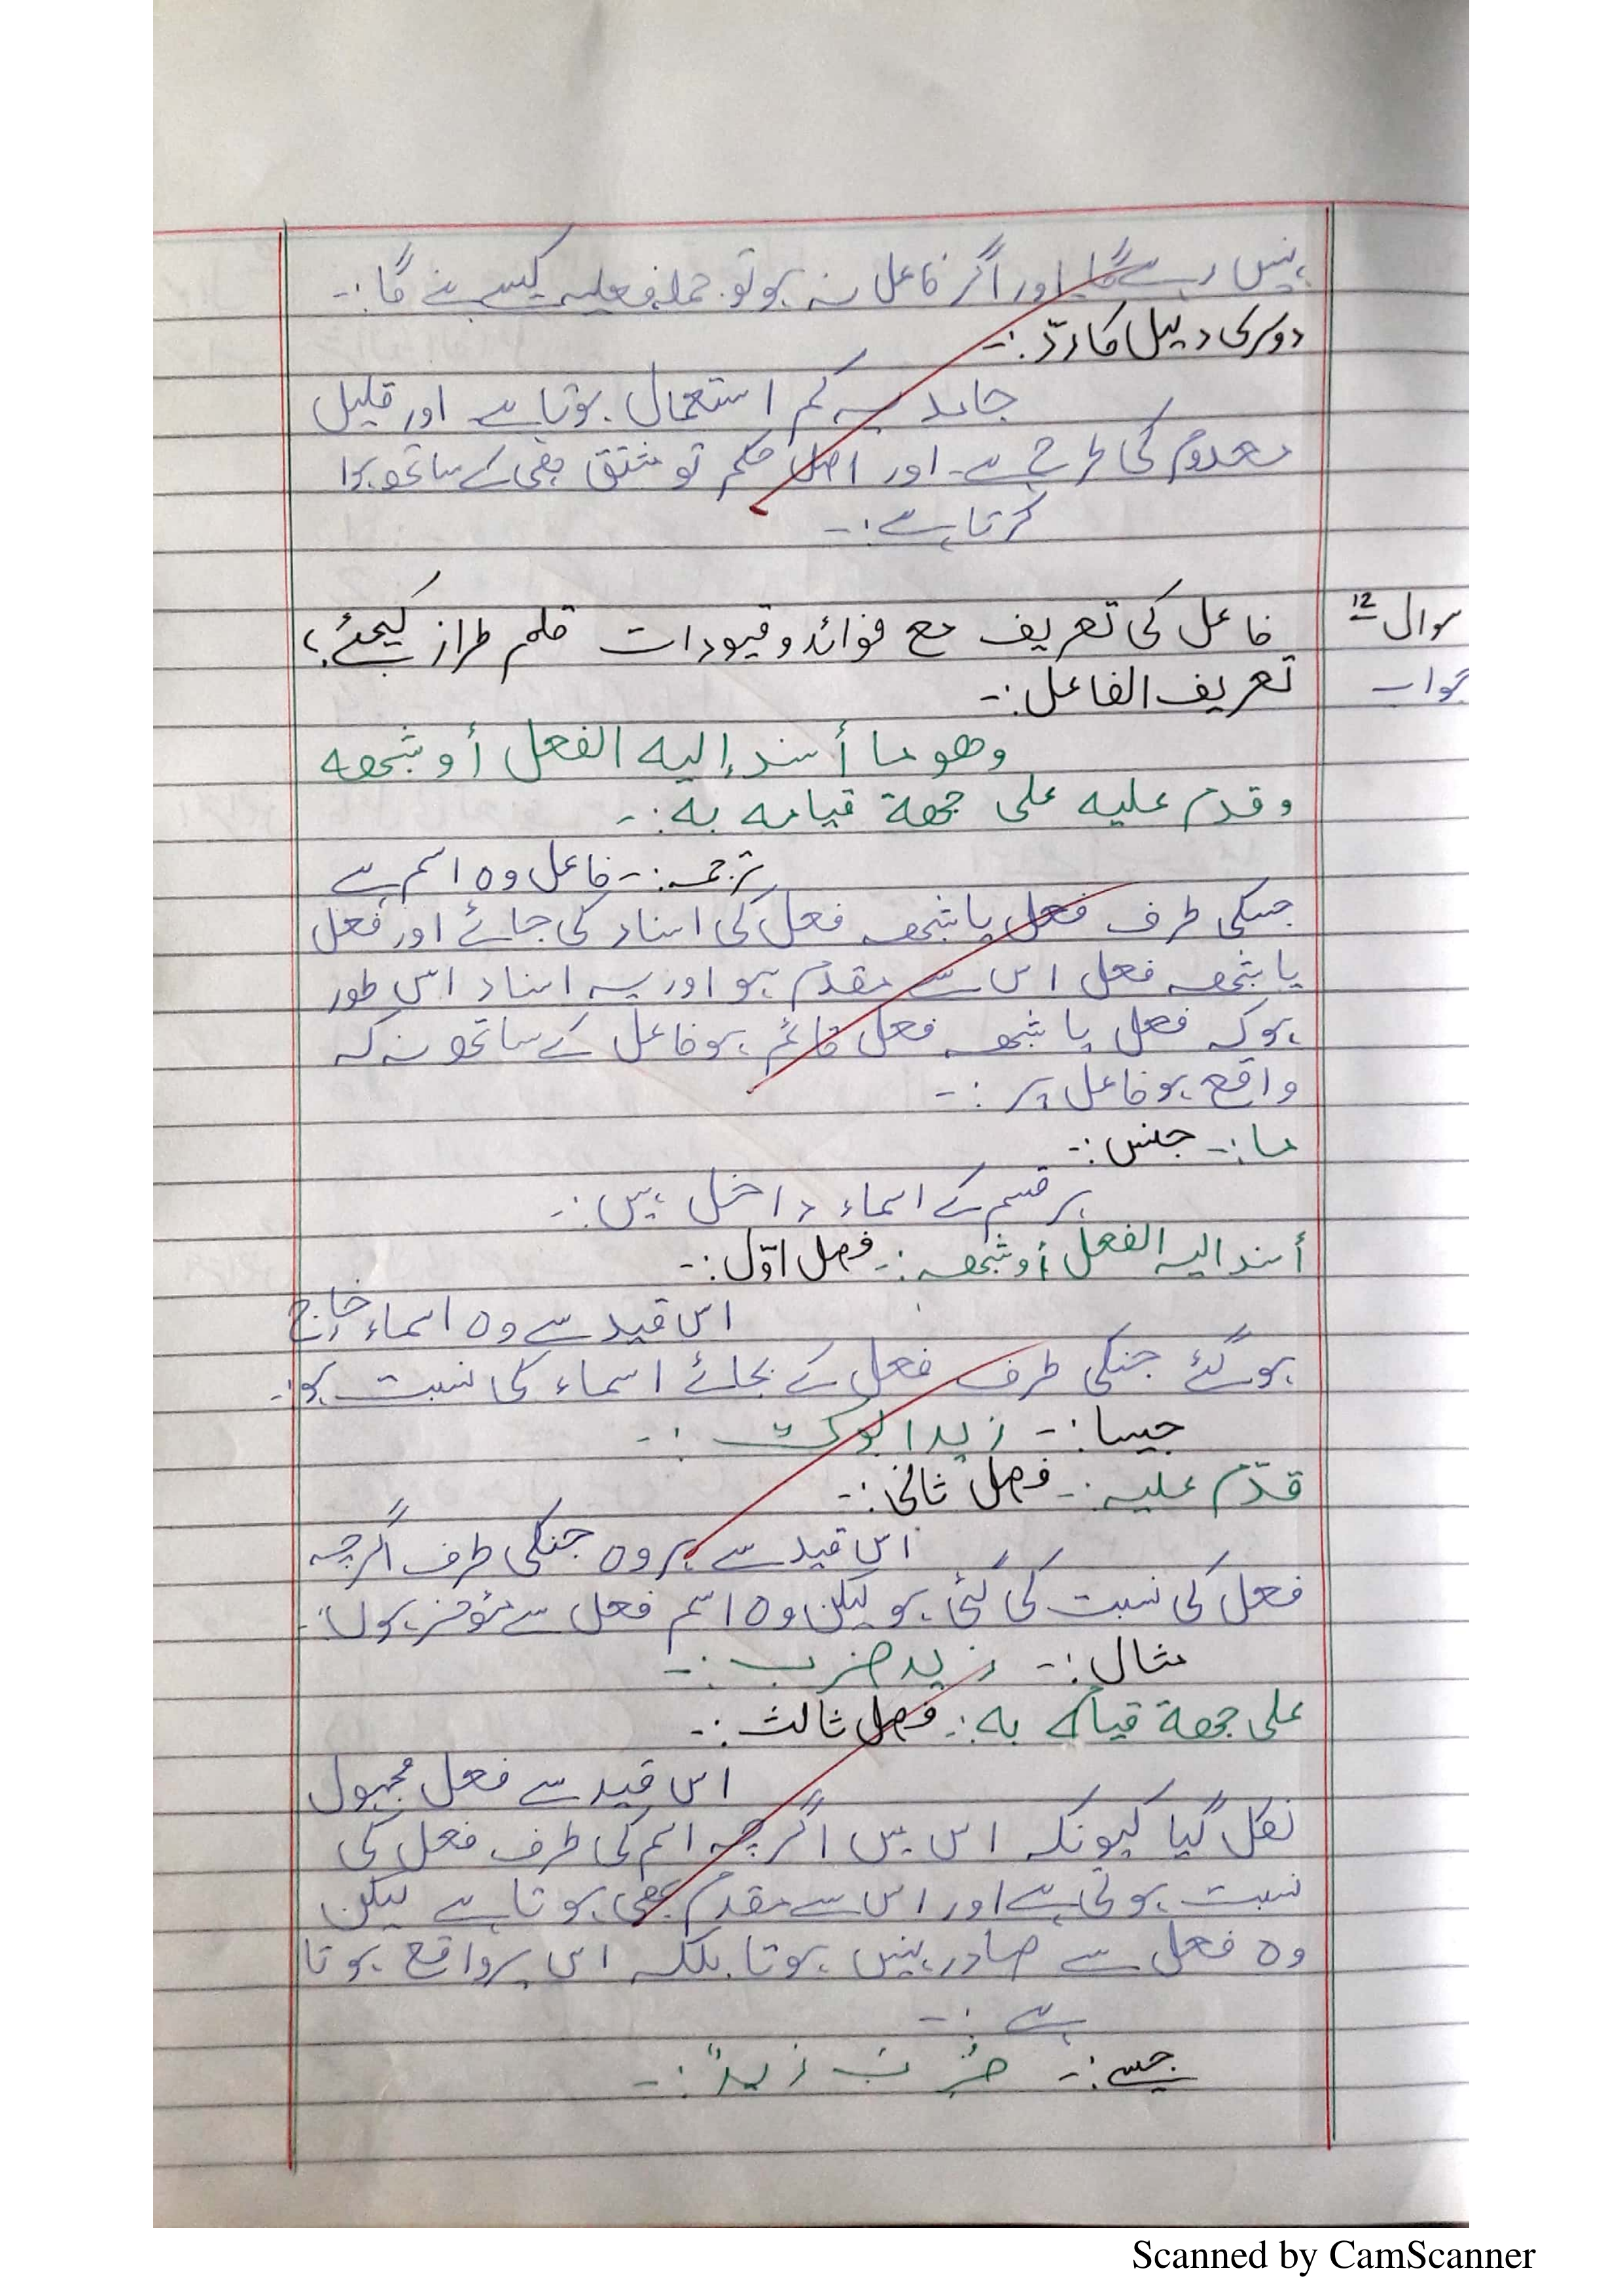 نہیں رہے گا اور اگر فاعل نہ ہو تو جملہ فعلیہ کیسے بنے گا:-
دوسری دلیل کا ردّ:-
جامد یہ کم استعمال ہوتا ہے اور قلیل
معدوم کی طرح ہے۔ اور اصل حکم تو مشتق ہی کے ساتھ ہوا
کرتا ہے:-
سوال 12 فاعل کی تعریف مع فوائد و قیودات قلم طراز کیجئے؟
جواب تعریف الفاعل:-
وھو ما أسند إليه الفعل أو شبھه
وقدم عليه على جهة قيامه به:-
ترجمہ:- فاعل وہ اسم ہے
جسکی طرف فعل یا شبھہ فعل کی اسناد کی جائے اور فعل
یا شبھہ فعل اس سے مقدم ہو اور یہ اسناد اس طور
ہو کہ فعل یا شبھہ فعل قائم ہو فاعل کے ساتھ نہ کہ
واقع ہو فاعل پر:-
ما:- جنس:-
ہر قسم کے اسماء داخل ہیں:-
أسند اليه الفعل أو شبھه:- فصل اوّل:-
اس قید سے وہ اسماء خارج
ہو گئے جنکی طرف فعل کے بجائے اسماء کی نسبت ہو:-
جیسا:- زید ابوک:-
قدّم عليه:- فصل ثانی:-
اس قید سے ہر وہ جنکی طرف اگرچہ
فعل کی نسبت کی گئی ہو لیکن وہ اسم فعل سے مؤخر ہوں:-
مثال:- زید ضرب:-
على جهة قيامه به:- فصل ثالث:-
اس قید سے فعل مجہول
نکل گیا کیونکہ اس میں اگرچہ اسم کی طرف فعل کی
نسبت ہوتی ہے اور اس سے مقدم بھی ہوتا ہے لیکن
وہ فعل سے صادر نہیں ہوتا بلکہ اس پر واقع ہوتا
ہے:-
جیسے:- ضُرِبَ زیدٌ:-
Scanned by CamScanner